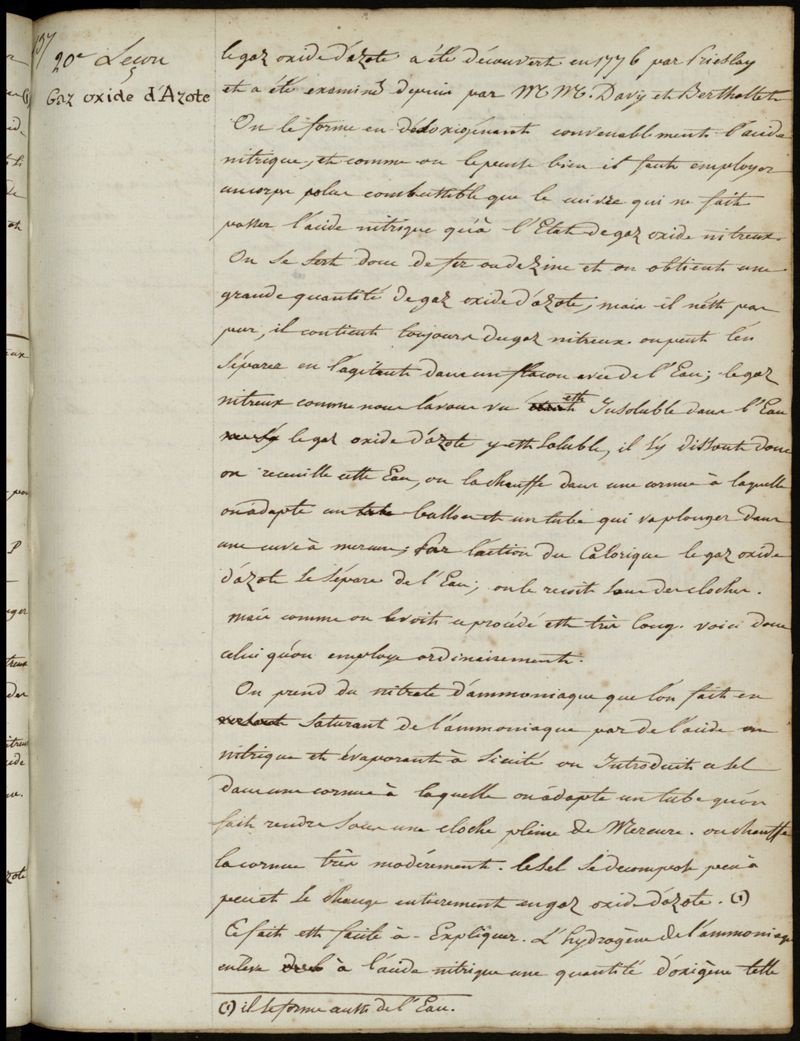 137
20e Leçon
Gaz oxide d'Azote
le gaz oxide d'azote a été découvert en 1776 par Priestley
et a été examiné depuis par MM. Davy et Berthollet
On le forme en désoxigénant convenablement l'acide
nitrique, et comme on le pense bien il faut employer
un corps plus combustible que le cuivre qui ne fait
passer l'acide nitrique qu'à l'Etat de gaz oxide nitreux
On se sert donc de fer ou de Zinc et on obtient une
grande quantité de gaz oxide d'azote, mais il n'est pas
pur, il contient toujours du gaz nitreux on peut l'en
séparer en l'agitant dans un flacon avec de l'Eau; le gaz
nitreux comme nous l'avons vu est Insoluble dans l'Eau
le gaz oxide d'azote y est soluble, il s'y dissout donc
on recueille cette Eau, on la chauffe dans une cornue à laquelle
on adapte un ballon et un tube qui va plonger dans
une cuve à mercure; Par l'action du Calorique le gaz oxide
d'azote se sépare de l'Eau; on le reçoit sous des cloches.
mais comme on le voit ce procédé est très long. voici donc
celui qu'on employe ordinairement.
On prend du nitrate d'ammoniaque que l'on fait en
saturant de l'ammoniaque par de l'acide
nitrique et évaporant à siccité on Introduit ce sel
dans une cornue à laquelle on adapte un tube qu'on
fait rendre sous une cloche pleine de Mercure. on chauffe
la cornue très modérément. le sel se decompose peu à
peu et se change entierement en gaz oxide d'azote. (1)
Ce fait est facile à Expliquer. L'hydrogène de l'ammoniaque
enlève à l'acide nitrique une quantité d'oxigène telle
(1) il se forme aussi de l'Eau.